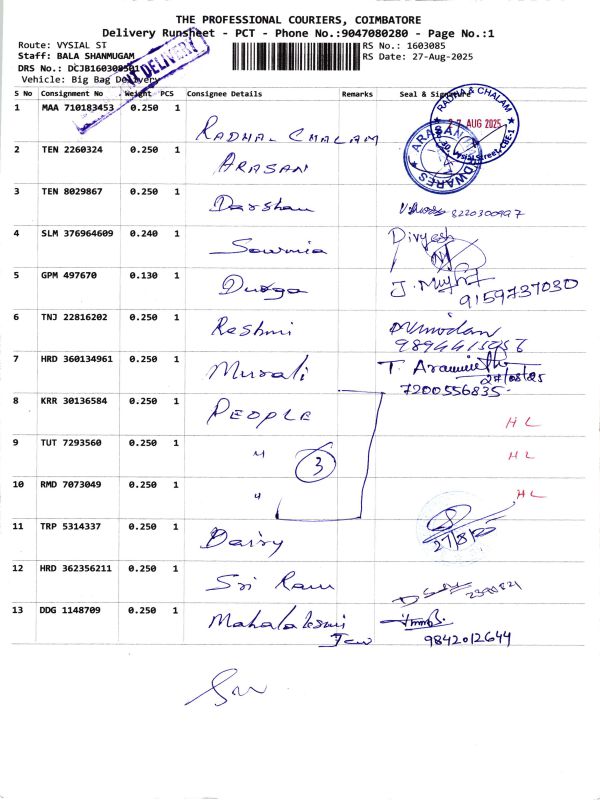 THE PROFESSIONAL COURIERS, COIMBATORE
Delivery Runsheet - PCT - Phone No.:9047080280 - Page No.:1
Route: VYSIAL ST
RS No.: 1603085
Staff: BALA SHANMUGAM
RS Date: 27-Aug-2025
DRS No.: DCJB160308501
Vehicle: Big Bag Delivery
S No Consignment No Weight PCS Consignee Details Remarks Seal & Signature
1 MAA 710183453 0.250 1 RADHA CHALAM
RADHA & CHALAM
27 AUG 2025
Vysial Street, CBE-1
2 TEN 2260324 0.250 1 ARASAN
ARASAN
3 TEN 8029867 0.250 1 Darshan
4 SLM 376964609 0.240 1 Sowmia Divyesh
5 GPM 497670 0.130 1 Durga
9159737030
6 TNJ 22816202 0.250 1 Reshmi
7 HRD 360134961 0.250 1 Murali
27/08/25
7200556835
8 KRR 30136584 0.250 1 PEOPLE HL
9 TUT 7293560 0.250 1 " 3 HL
10 RMD 7073049 0.250 1 " HL
11 TRP 5314337 0.250 1 Dairy
27/8/25
12 HRD 362356211 0.250 1 Sri Ram
13 DDG 1148709 0.250 1 Mahalakshmi
Jew
9842012644